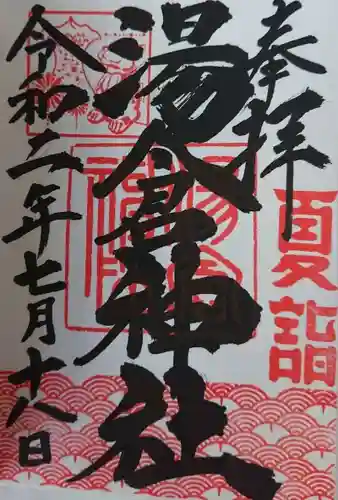 奉拝
夏詣
湯倉神社
令和二年七月十八日